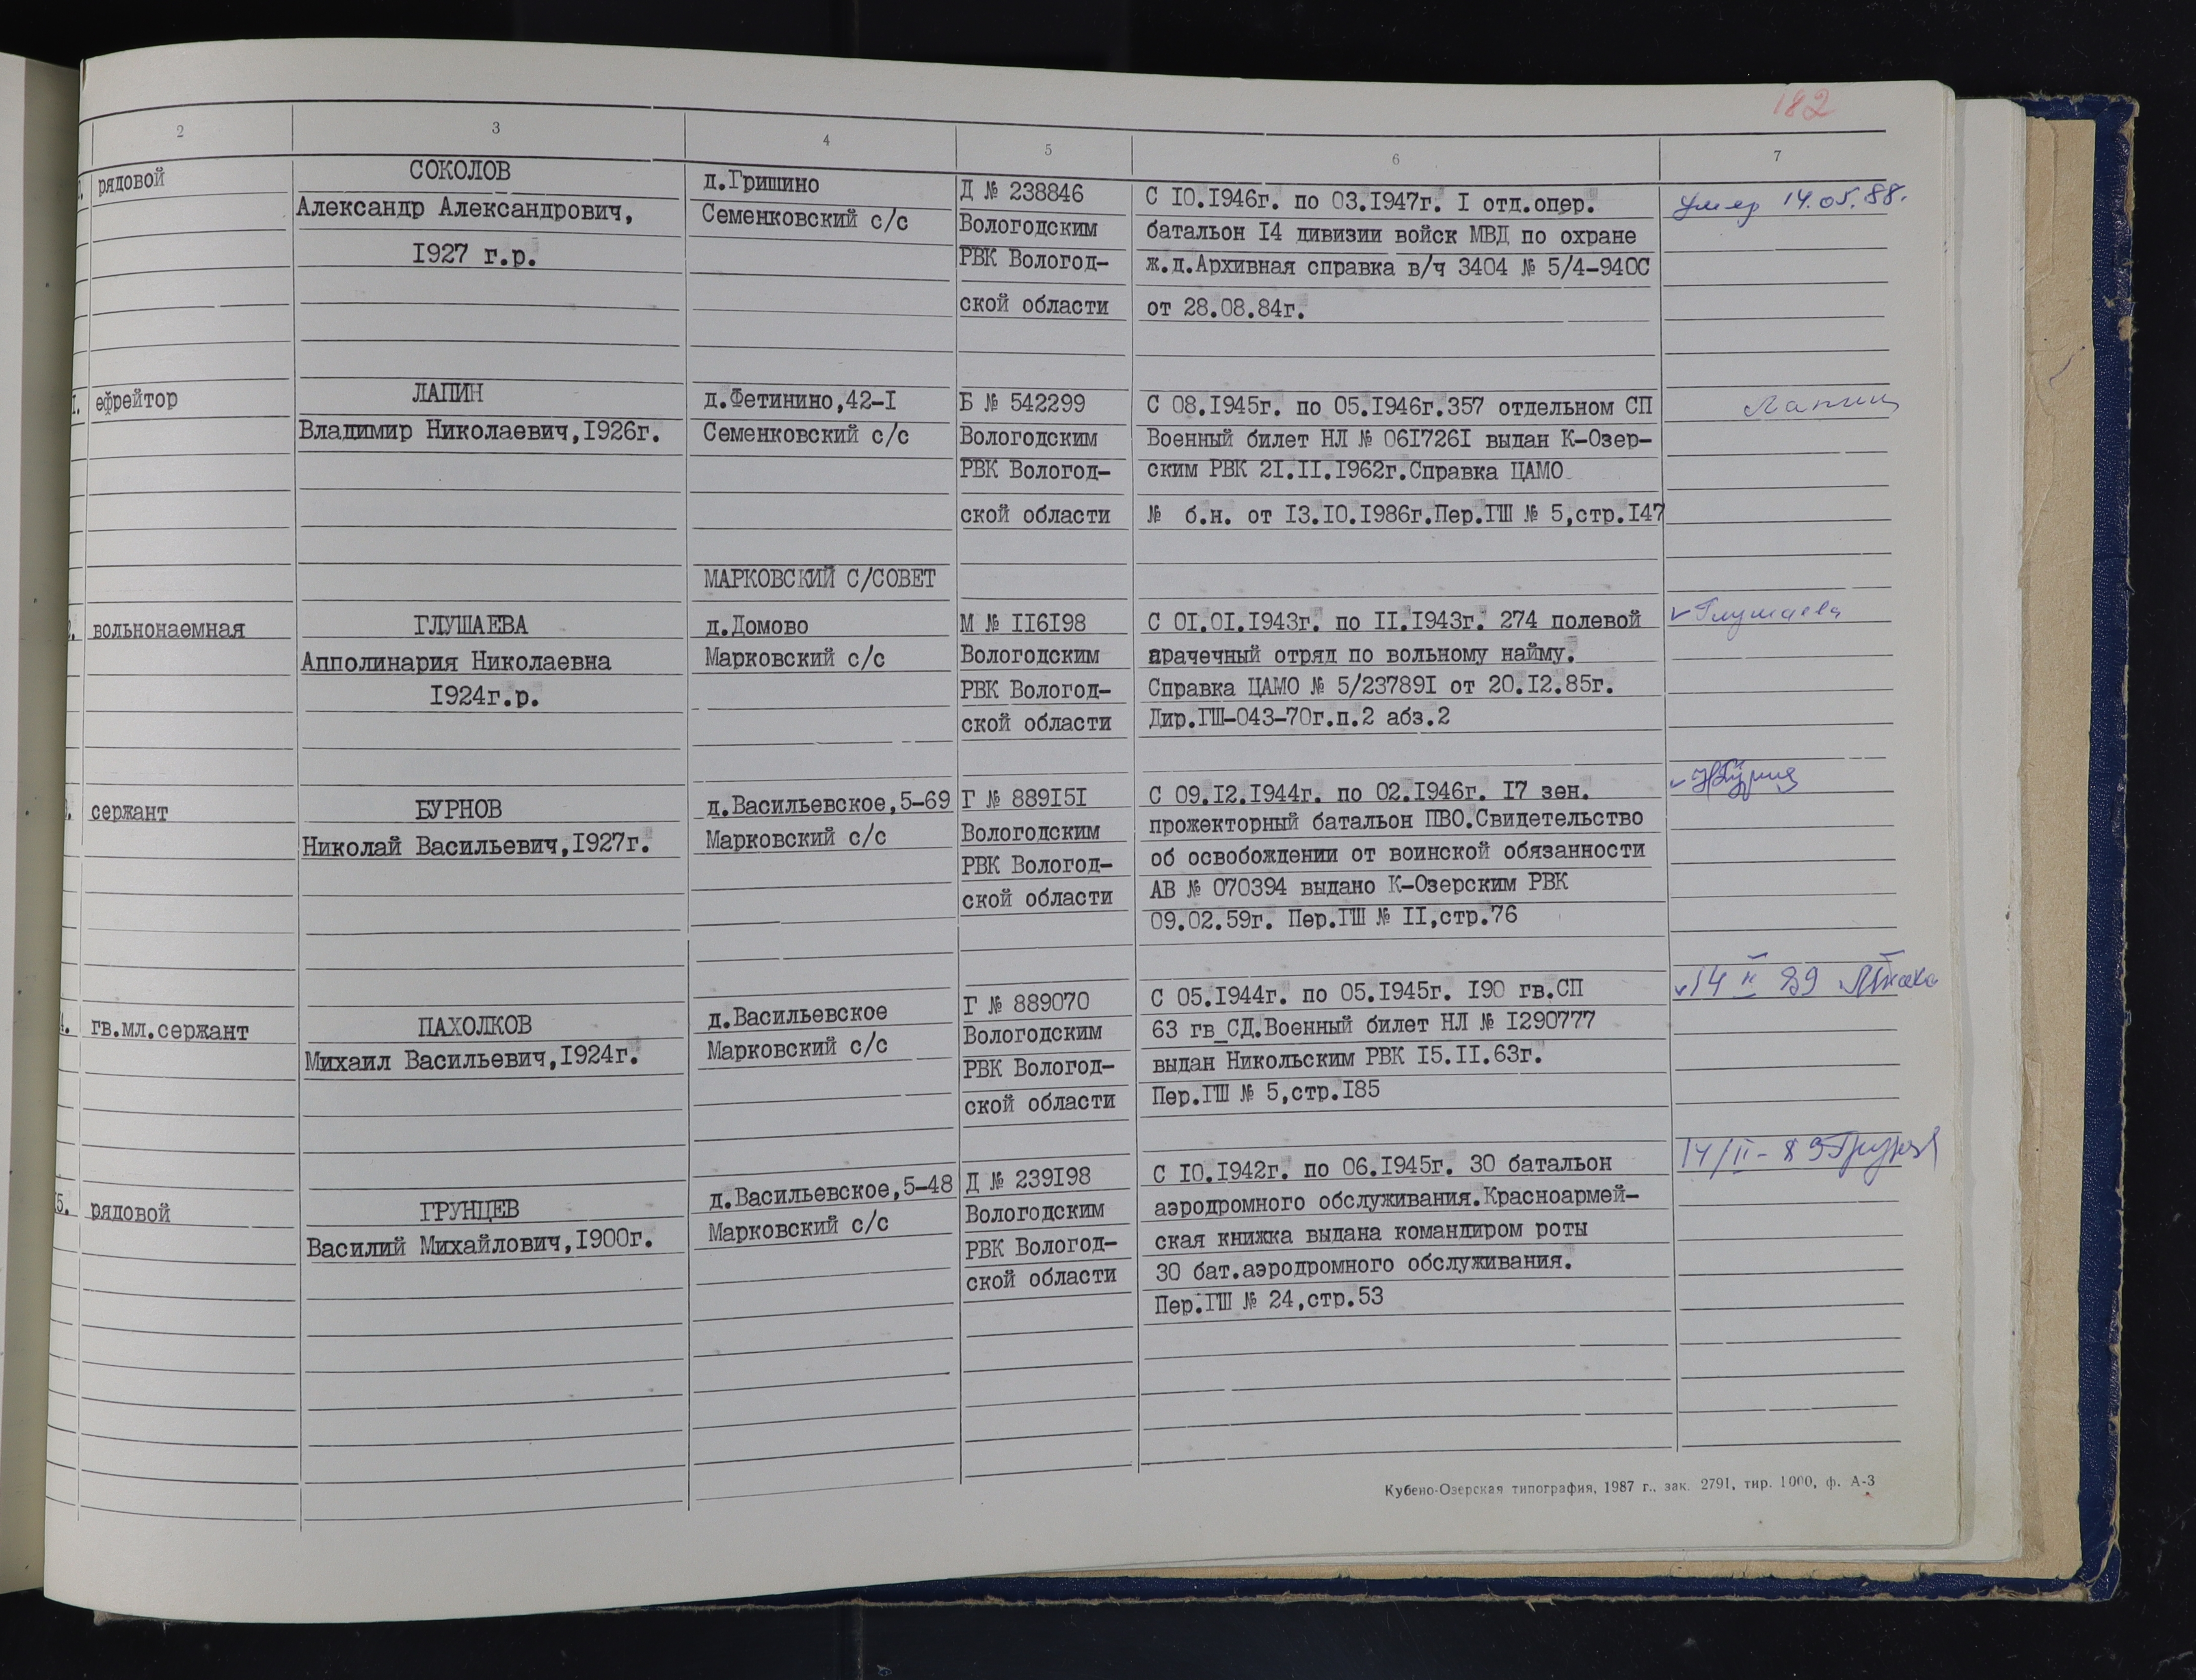 182
2 3 4 5 6 7
рядовой
СОКОЛОВ
Александр Александрович,
1927 г.р.
д.Гришино
Семенковский с/с
Д № 238846
Вологодским
РВК Вологод-
ской области
С 10.1946г. по 03.1947г. I отд.опер.
батальон 14 дивизии войск МВД по охране
ж.д.Архивная справка в/ч 3404 № 5/4-940С
от 28.08.84г.
умер 14.05.88.
ефрейтор
ЛАПИН
Владимир Николаевич,1926г.
д.Фетинино,42-1
Семенковский с/с
Б № 542299
Вологодским
РВК Вологод-
ской области
С 08.1945г. по 05.1946г.357 отдельном СП
Военный билет НЛ № 0617261 выдан К-Озер-
ским РВК 21.11.1962г.Справка ЦАМО
№ б.н. от 13.10.1986г.Пер.ГШ № 5,стр.147
Лапин
МАРКОВСКИЙ С/СОВЕТ
вольнонаемная
ГЛУШАЕВА
Апполинария Николаевна
1924г.р.
д.Домово
Марковский с/с
М № 116198
Вологодским
РВК Вологод-
ской области
С 01.01.1943г. по 11.1943г. 274 полевой
прачечный отряд по вольному найму.
Справка ЦАМО № 5/237891 от 20.12.85г.
Дир.ГШ-043-70г.п.2 абз.2
Глушаева
сержант
БУРНОВ
Николай Васильевич,1927г.
д.Васильевское,5-69
Марковский с/с
Г № 889151
Вологодским
РВК Вологод-
ской области
С 09.12.1944г. по 02.1946г. 17 зен.
прожекторный батальон ПВО.Свидетельство
об освобождении от воинской обязанности
АВ № 070394 выдано К-Озерским РВК
09.02.59г. Пер.ГШ № 11,стр.76
гв.мл.сержант
ПАХОЛКОВ
Михаил Васильевич,1924г.
д.Васильевское
Марковский с/с
Г № 889070
Вологодским
РВК Вологод-
ской области
С 05.1944г. по 05.1945г. 190 гв.СП
63 гв_СД.Военный билет НЛ № 1290777
выдан Никольским РВК 15.11.63г.
Пер.ГШ № 5,стр.185
14 II 89
5.
рядовой
ГРУНЦЕВ
Василий Михайлович,1900г.
д.Васильевское,5-48
Марковский с/с
Д № 239198
Вологодским
РВК Вологод-
ской области
С 10.1942г. по 06.1945г. 30 батальон
аэродромного обслуживания.Красноармей-
ская книжка выдана командиром роты
30 бат.аэродромного обслуживания.
Пер.ГШ № 24,стр.53
14/II-89
Кубено-Озерская типография, 1987 г., зак. 2791, тир. 1000, ф. А-3